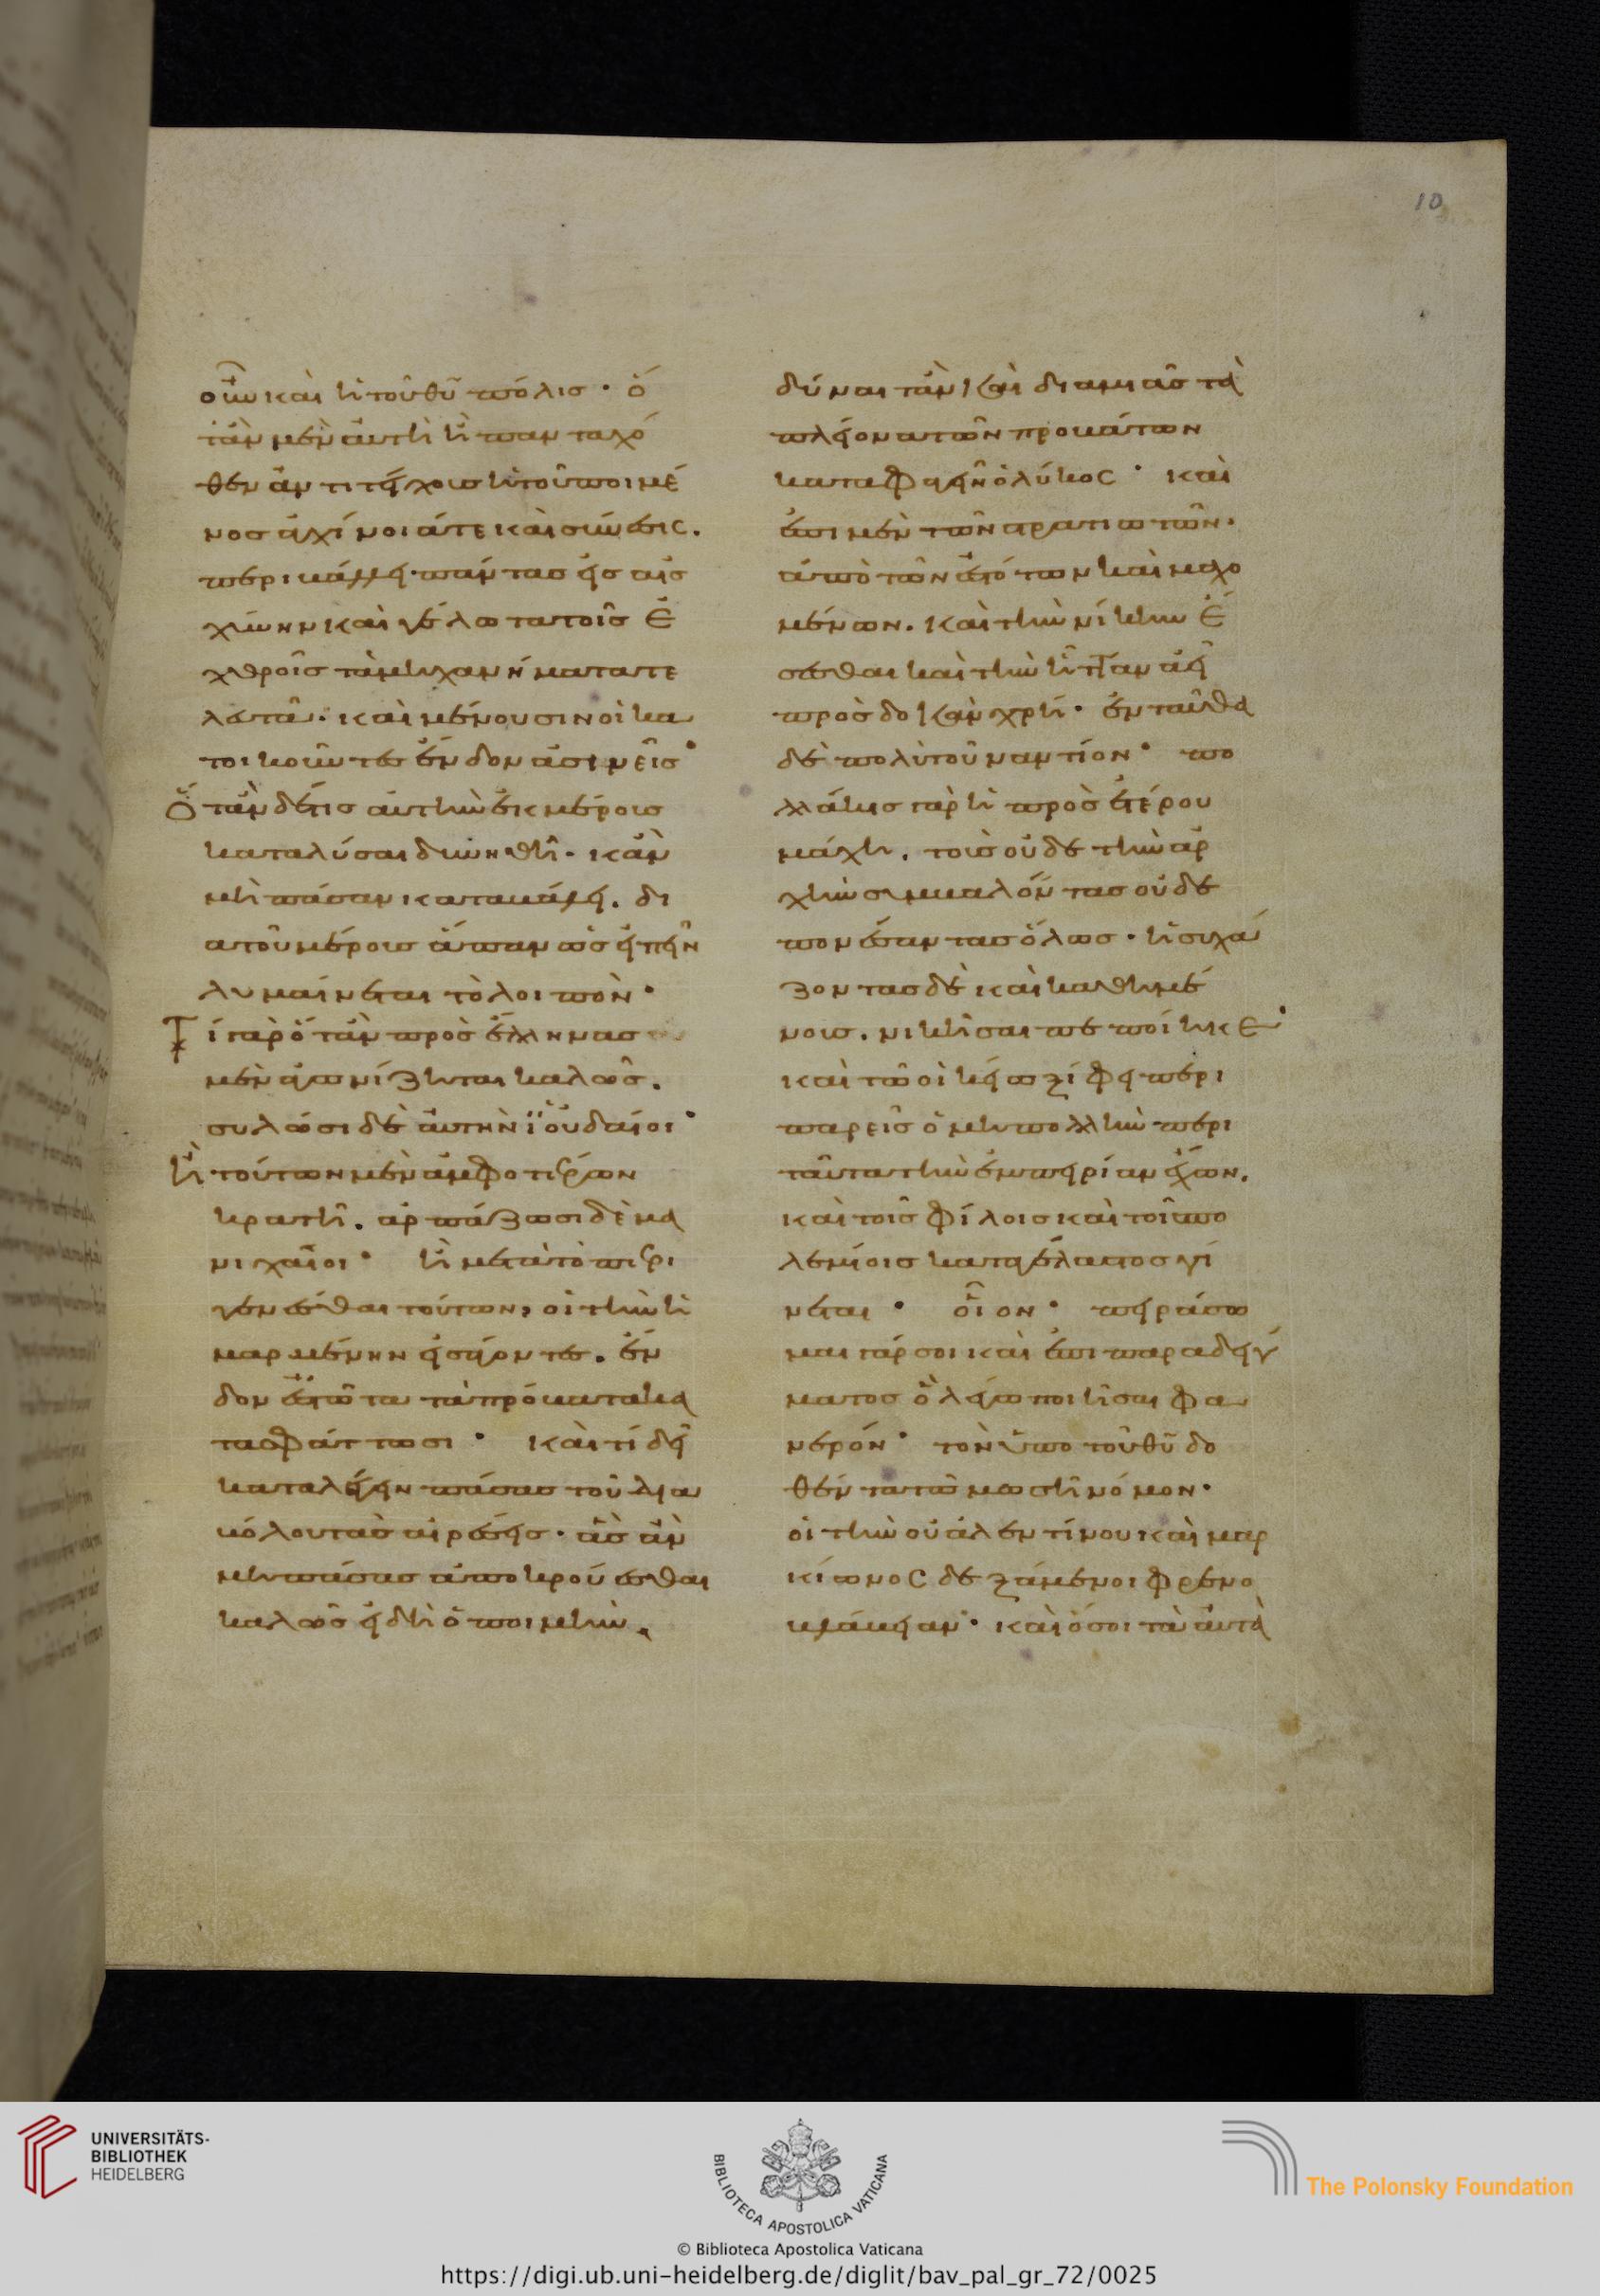 οὖν καὶ ἡ τοῦ θῦ πόλις · ὅ
τἂν μὲν αὐτὴ ἢ πανταχό
θεν ἀντὶ τείχους ἡ τοῦ ποιμέ
νος ἀγχίνοιά τε καὶ σύνεσις.
περιβάλλη· πάντας εἰς αἰσ
χύνην καὶ γέλωτα τοῖς ἐ
χθροῖς τὰ μηχανήματα τε
λευτᾶ· καὶ μένουσιν οἱ κα
τοικοῦντες ἔνδον ἀσινεῖς·
Ὅτἂν δέ τις αὐτὴν ἐκ μέρους
καταλύσαι δυνηθῆ· κἂν
μὴ πάσαν καταβάλη. δι
α τοῦ μέρους ἅπαν ὡς εἰπεῖν
λυμαίνεται τὸ λοιπὸν·
Τί γὰρ ὅτἂν πρὸς ἕλληνας
μὲν ἀγωνίζηται καλῶς.
συλῶσι δὲ αὐτὴν ϊουδαίοι·
ἢ τούτων μὲν ἀμφοτέρων
κρατῆ. ἁρπάζωσι δὲ μα
νιχαῖοι· ἢ μετὰ τὸ περι
γενέσθαι τούτων, οἱ τὴν εἱ
μαρμένην εἰσάγοντες. ἔν
δον ἑστῶτα τὰ πρόβατα κα
τασφάττωσι· καὶ τί δεῖ
καταλέγειν πάσας τοῦ δια
βόλου τὰς αἱρέσεις· ἃς ἂν
μὴ πάσας ἀποκρούεσθαι
καλῶς εἰδῆ ὁ ποιμὴν.
δύναιτ ἂν καὶ δια μιᾶς τὰ
πλείονα τῶν προβάτων
καταφαγεῖν ὁ λύκος · καὶ
ἐπι μὲν τῶν στρατιωτῶν.
ἀπὸ τῶν ἑστώτων καὶ μαχο
μένων. καὶ τὴν νίκην ἔ
σεσθαι καὶ τὴν ἧτταν ἀεὶ
προσδοκᾶν χρή· ἐνταῦθα
δὲ πολὺ τοῦναντίον· πο
λλάκις γὰρ ἡ πρὸς ἑτέρου
μάχη. τοὺς οὐδὲ τὴν ἀρ
χὴν συμβαλόντας οὐδὲ
πονέσαντας ὅλως· ἡσυχά
ζοντας δὲ καὶ καθημέ
νους. νικῆσαι πεποίηκε·
καὶ τῶ οἰκείω ξίφει περι
παρεῖς ὁ μὴ πολλὴν περι
ταῦτα τὴν ἐμπειρίαν ἔχων.
καὶ τοῖς φίλοις καὶ τοῖς πο
λεμίοις καταγέλαστος γί
νεται · οἷον · πειράσο
μαι γάρ σοι καὶ ἐπι παραδείγ
ματος ὃ λέγω ποιῆσαι φα
νερόν· τὸν ὑπο τοῦ θῦ δο
θέντα τῶ μωσῆ νόμον·
οἱ τὴν οὐαλεντίνου καὶ μαρ
κίωνος δεξάμενοι φρενο
βλάβειαν· καὶ ὅσοι τὰ αὐτὰ
10
UNIVERSITÄTS-
BIBLIOTHEK
HEIDELBERG
BIBLIOTECA APOSTOLICA VATICANA
The Polonsky Foundation
© Biblioteca Apostolica Vaticana
https://digi.ub.uni-heidelberg.de/diglit/bav_pal_gr_72/0025